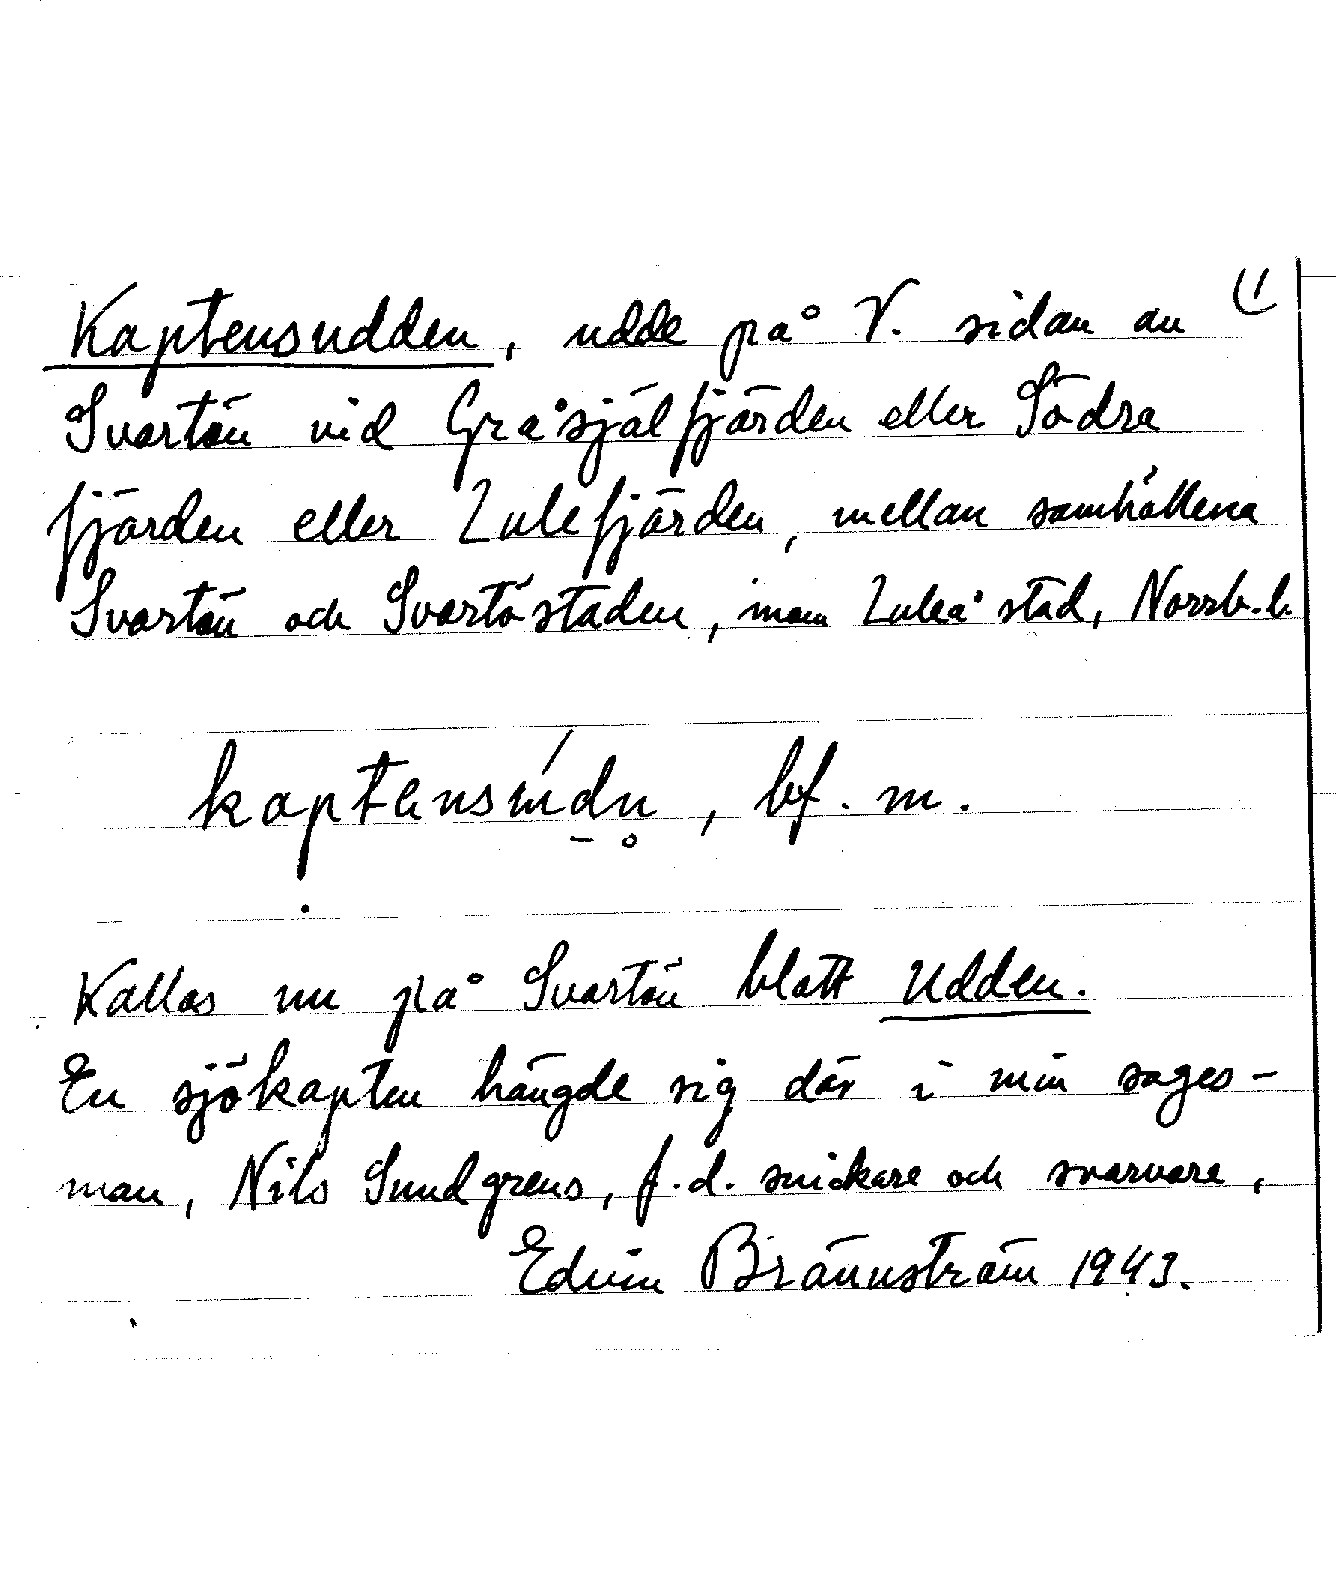 Kaptensudden, udde på V. sidan av (1
Svartön vid Gråsjälfjärden eller Södra
fjärden eller Lulefjärden, mellan samhällena
Svartön och Svartöstaden, inom Luleå stad, Norrb. l.
kaptensúdn̥, bf. m.
Kallas nu på Svartön blott Udden.
En sjökapten hängde sig där i min sages-
man, Nils Sundgrens, f.d. snickare och svarvare,
Edvin Brännström 1943.